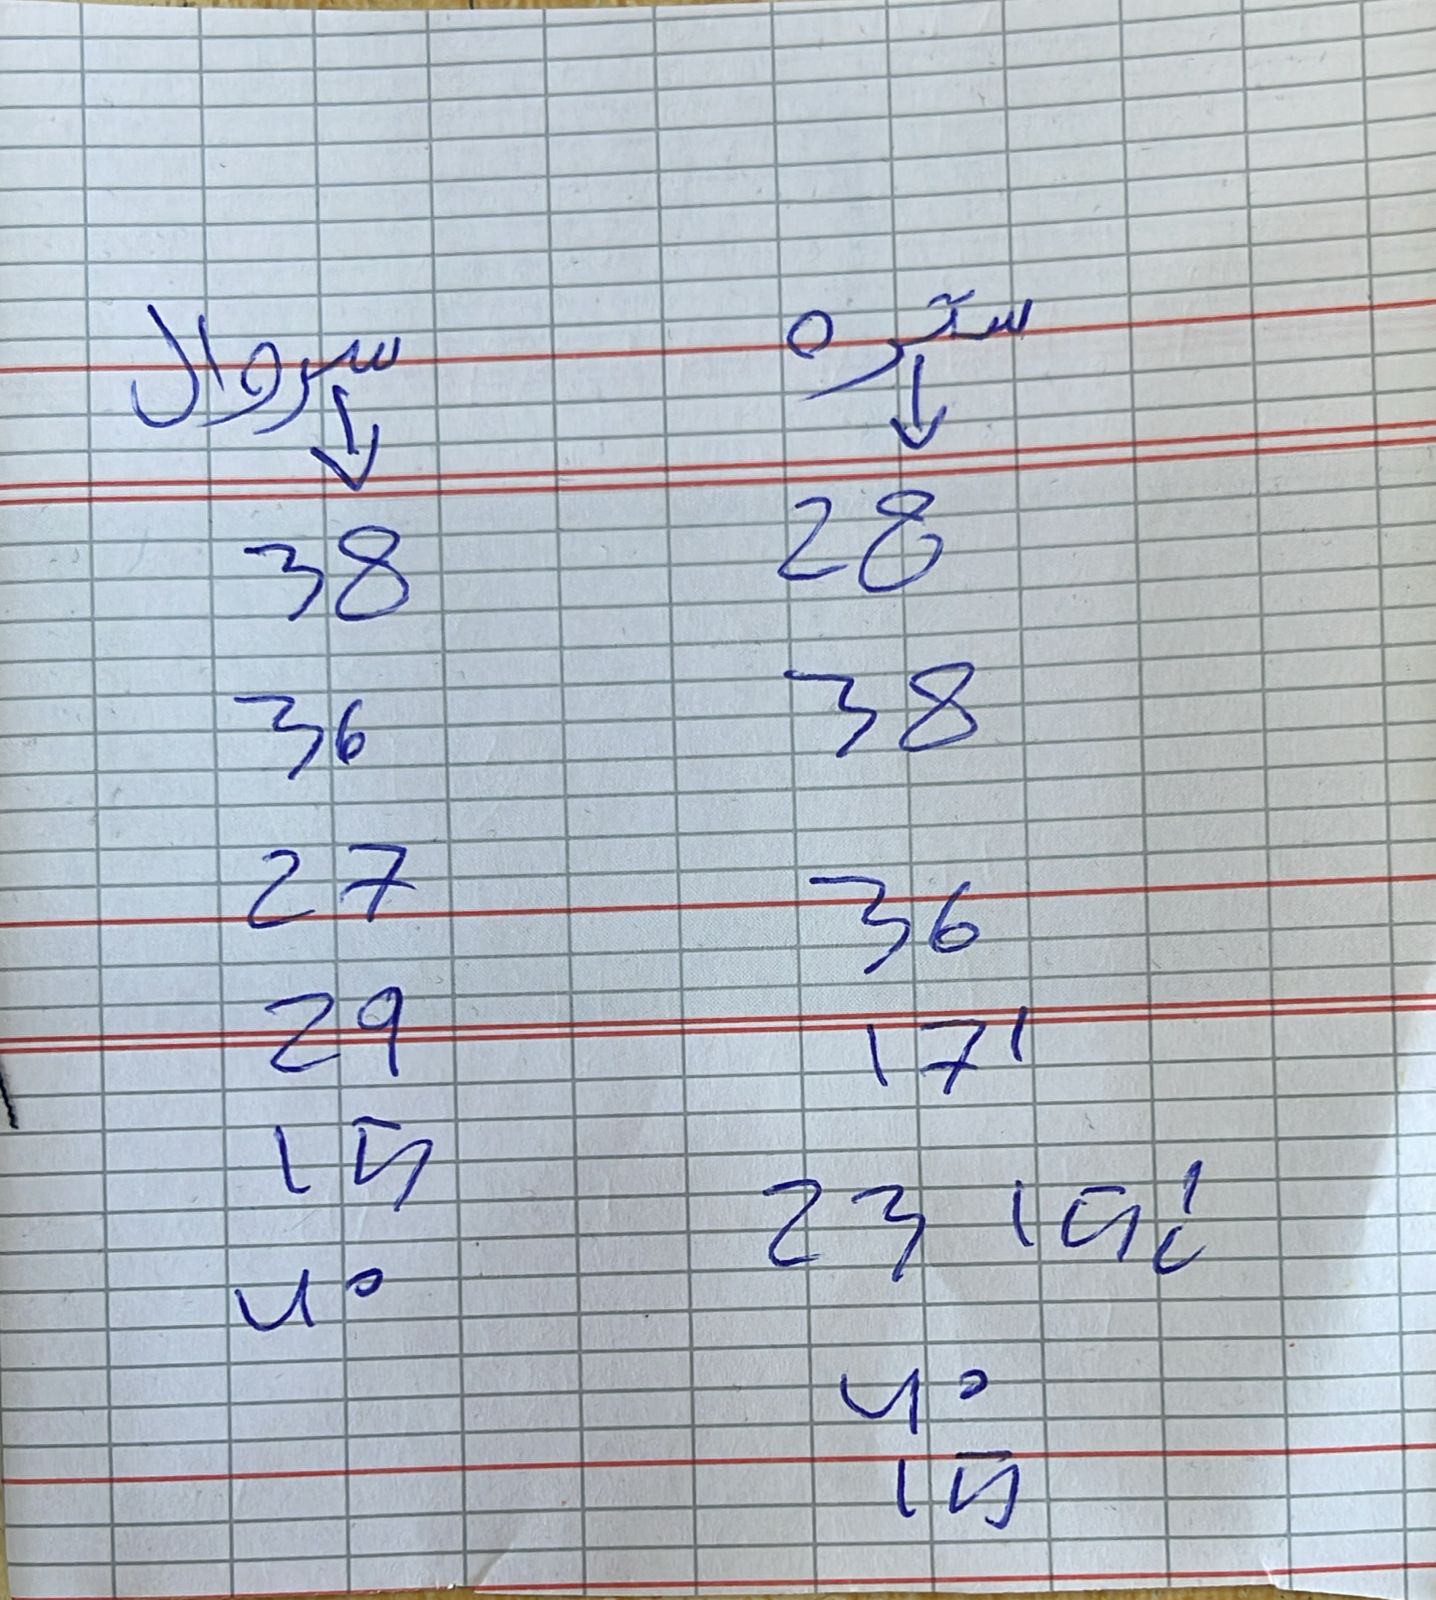 سترة
↓
28
38
36
17
23 15
40
15
سروال
↓
38
36
27
29
15
40